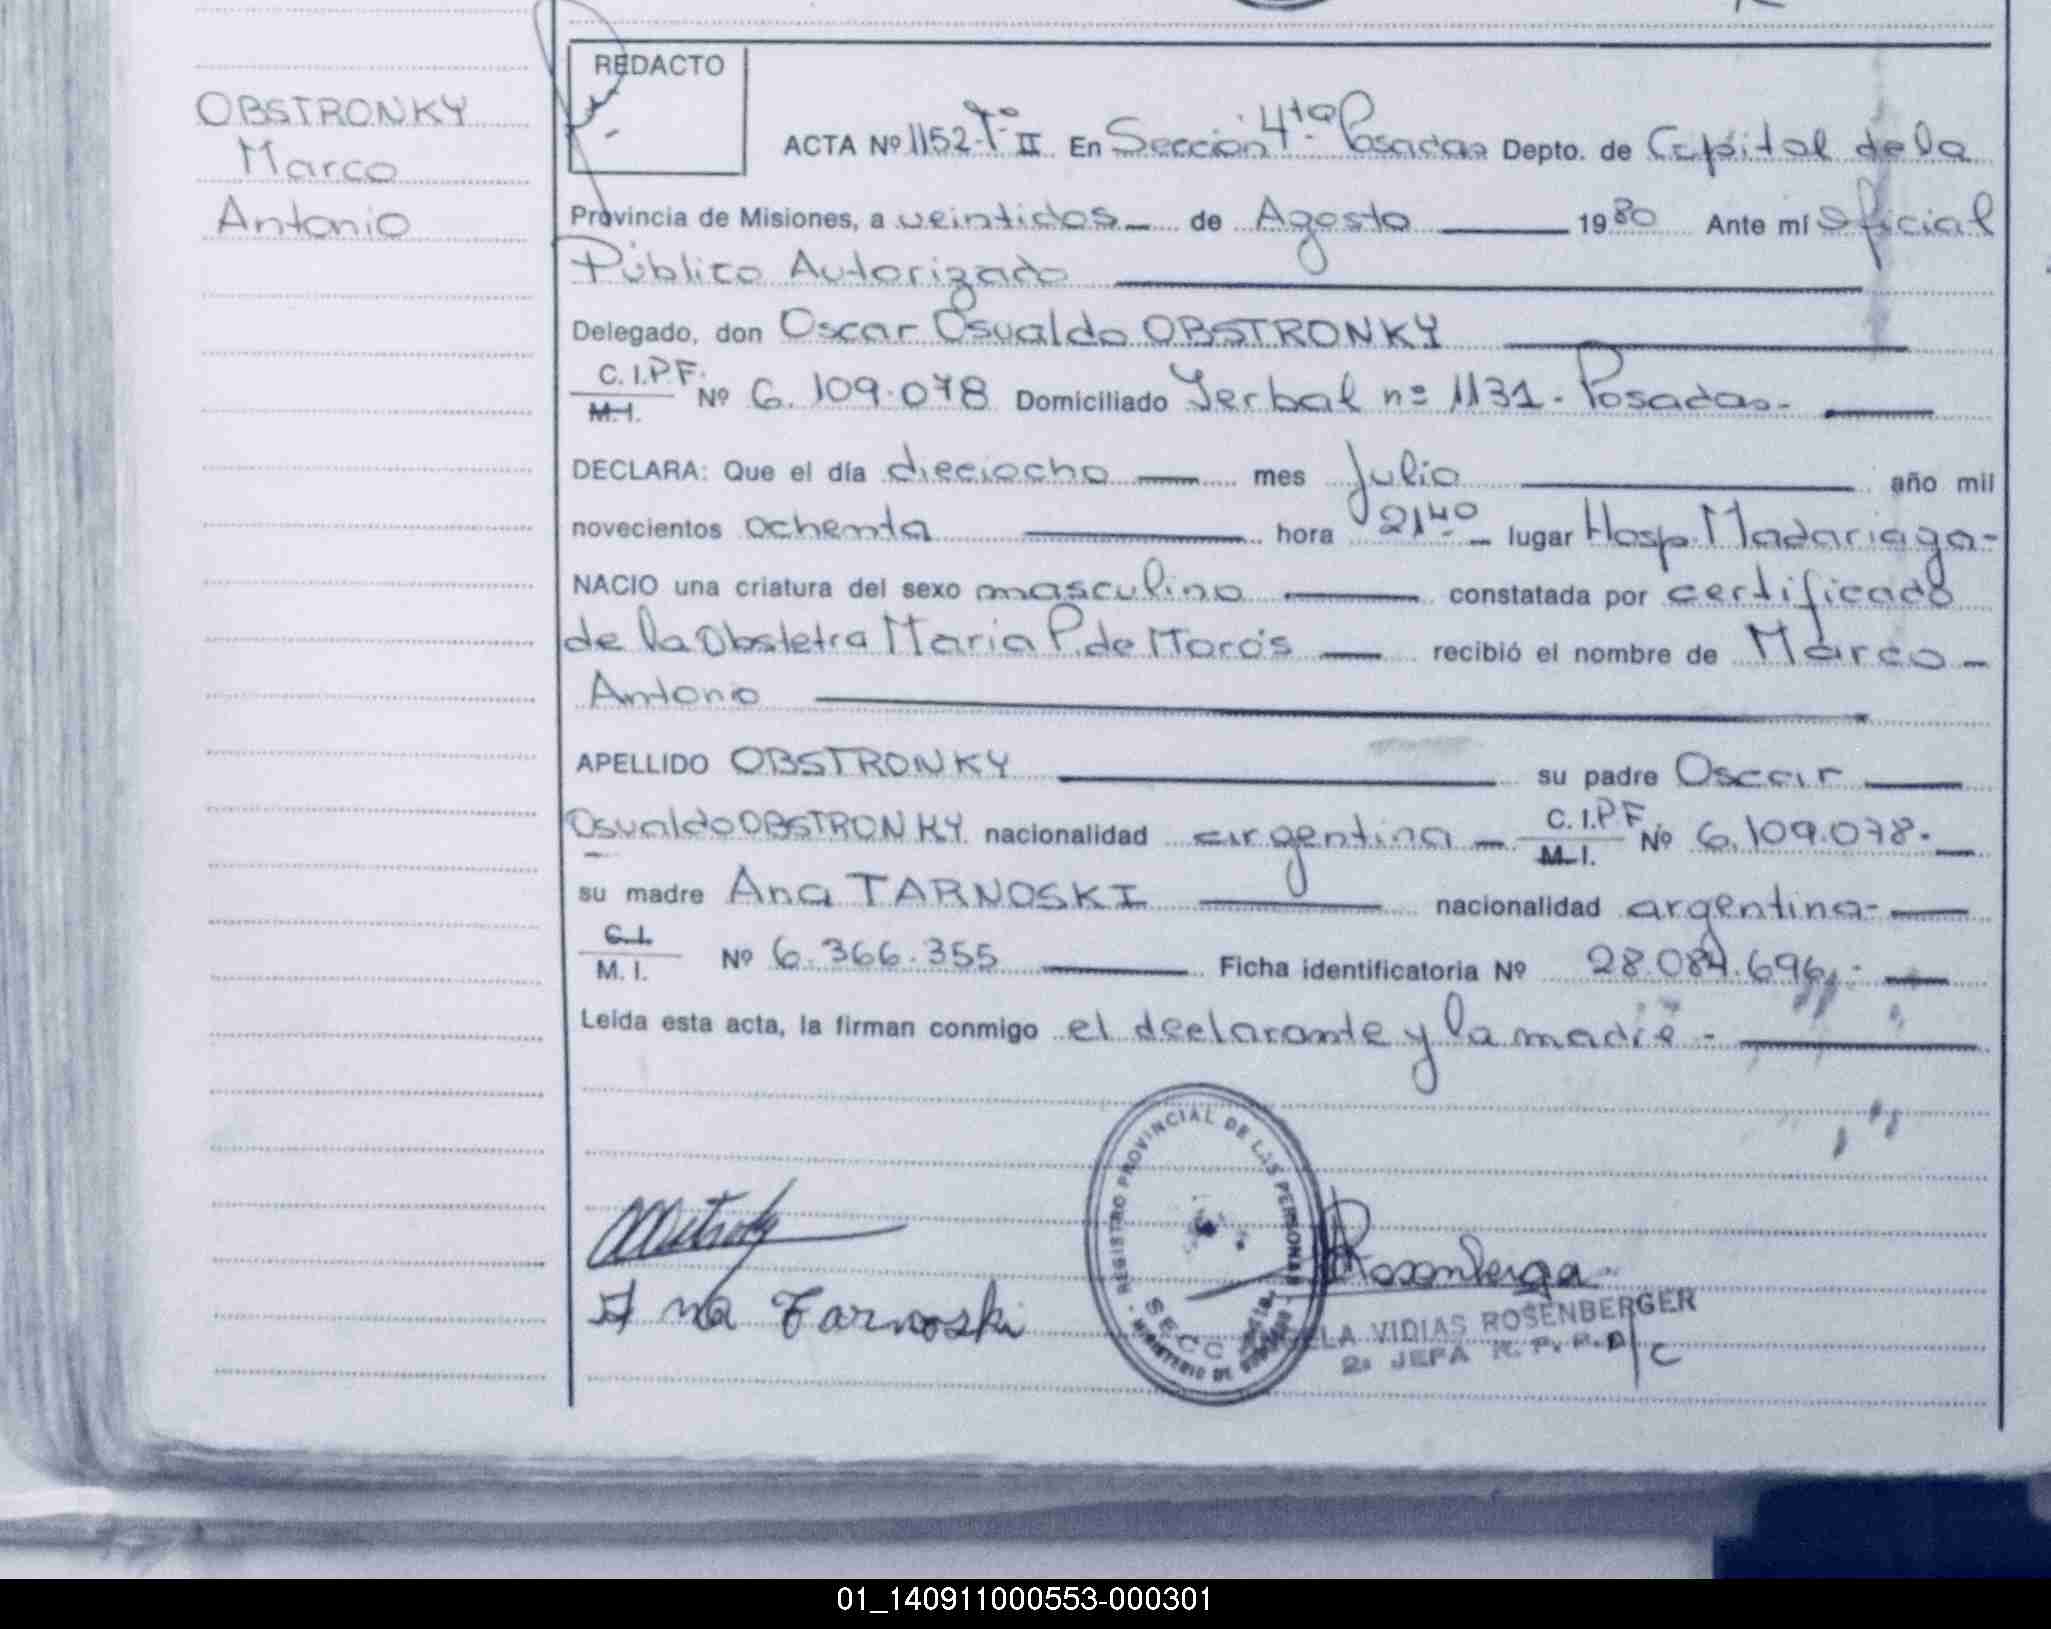 OBSTRONKY
Marco
Antonio
REDACTO
ACTA Nº 1152-Tº II En Sección 4ta Posadas Depto. de Capital de la
Provincia de Misiones, a veintidos de Agosto 1980 Ante mí Oficial
Público Autorizado
Delegado, don Oscar Osvaldo OBSTRONKY
C. I. P.F. Nº 6.109.078 Domiciliado Yerbal nº 1131 - Posadas-
M. I.
DECLARA: Que el día dieciocho mes Julio año mil
novecientos ochenta hora 21,40 lugar Hosp. Madariaga-
NACIO una criatura del sexo masculino constatada por certificado
de la Obstetra Maria P. de Moro's recibió el nombre de Marco
Antonio
APELLIDO OBSTRONKY su padre Oscar
Osvaldo OBSTRONKY nacionalidad argentina C. I. P.F. Nº 6.109.078.
M. I.
su madre Ana TARNOSKI nacionalidad argentina-
C. I.
M. I. Nº 6.366.355 Ficha identificatoria Nº 28.084.696,-
Leída esta acta, la firman conmigo el declarante y la madre -
REGISTRO PROVINCIAL DE LAS PERSONAS
SECC
MINISTERIO DE
Ana Tarnoski
VIDIAS ROSENBERGER
2º JEFA R. P. P. A/C
01_140911000553-000301